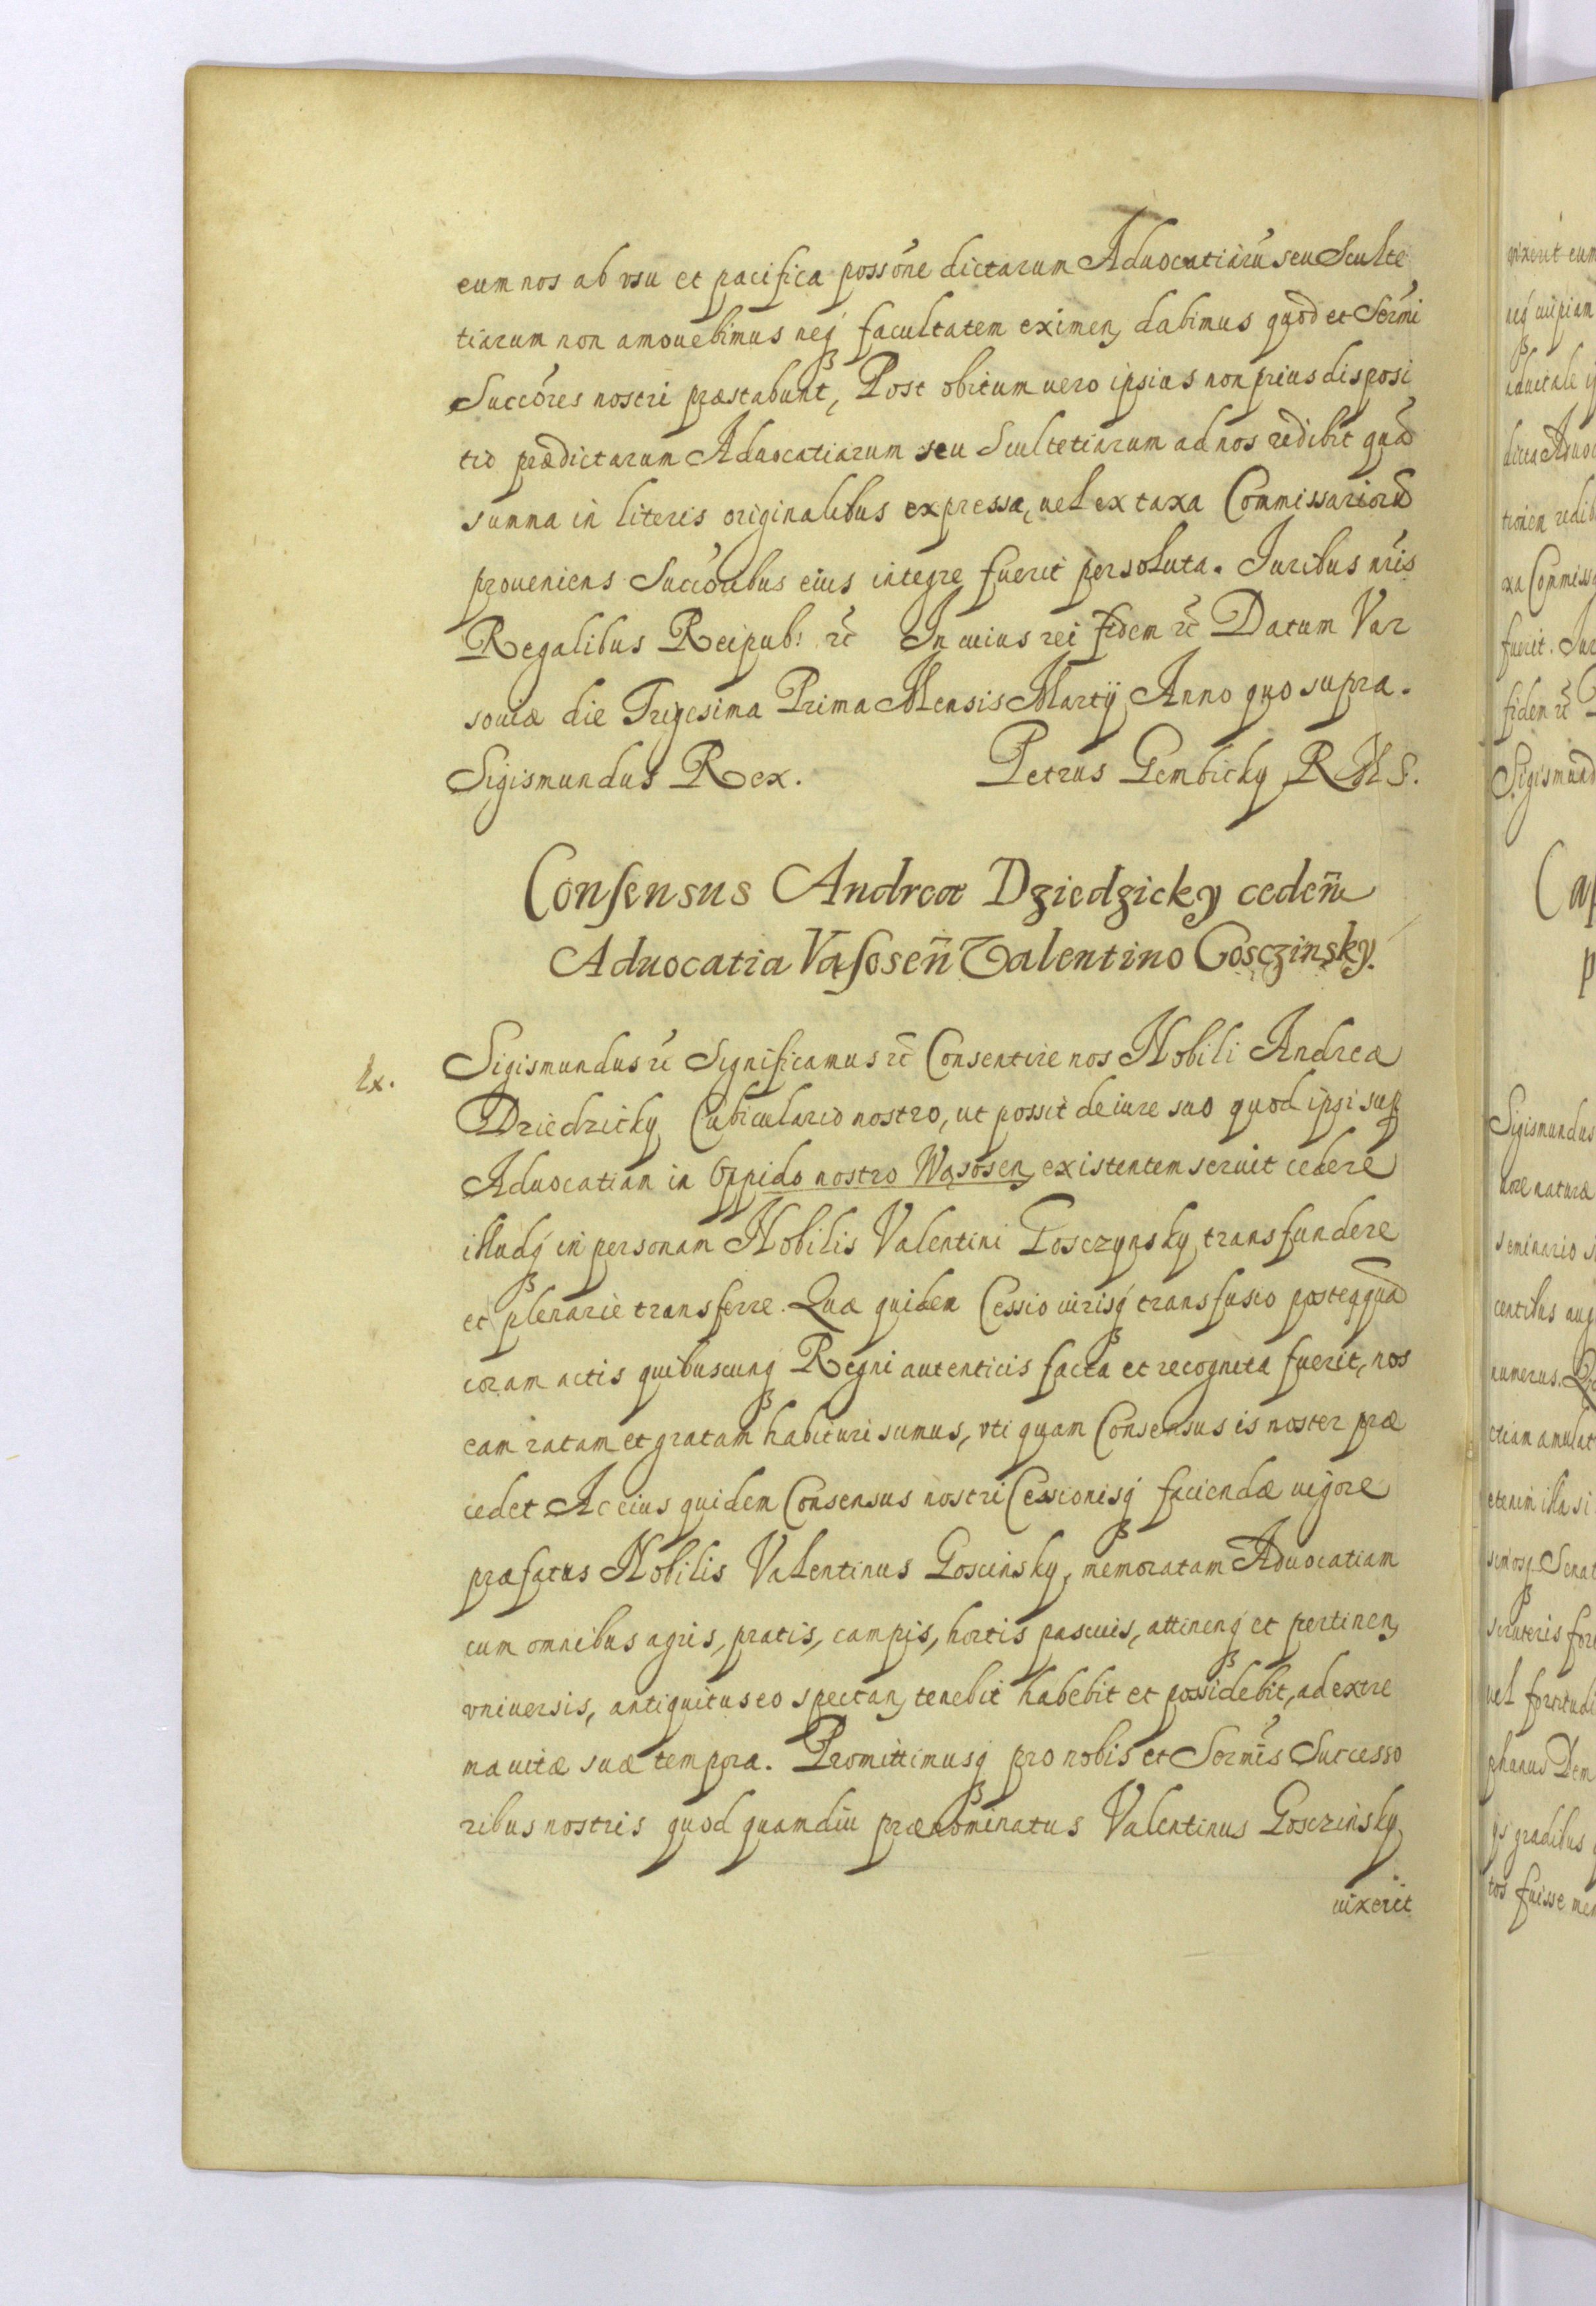 eum nos ab vsu et pacifica possõne dictarum Aduocatiarũ seu Sculte
tiarum non amouebimus neq́ facultatem eximen, dabimus quod et Sermi
Succores nostri præstabunt, Post obitum uero ipsius non prius disposi
tio prædictarum Aduocatiarum seu Scultetiarum ad nos redibit quã
summa in literis originalibus expressa, uel ex taxa Commissariorũ
proueniens Succoribus eius integre fuerit persoluta. Iuribus nris
Regalibus Reipub: rc̃ In cuius rei fidem rc̃ Datum Var
souiæ die Trigesima Prima Mensis Martij Anno quo supra.
Sigismundus Rex. Petrus Gembicky R M S.
Consensus Andreæ Dziedzicky cedeñ
Aduocatia Vasoseñ Valentino Gosczinsky.
Ex. Sigismundus rc̃ Significamus rc̃ Consentire nos Nobili Andreæ
Dziedzicky Cubiculario nostro, ut possit de iure suo quod ipsi sup
Aduocatiam in Oppido nostro Wąsosen, existentem seruit cedere
illudq́ in personam Nobilis Valentini Gosczynsky transfundere
et plenarie transferre. Quæ quidem Cessio iurisq́ transfusio posteaquã
coram actis quibuscunq́ Regni autenticis facta et recognita fuerit, nos
eam ratam et gratam habituri sumus, vti quam Consensus is noster præ
cedet Ac eius quidem Consensus nostri Cessionisq́ faciendæ uigore
præfatus Nobilis Valentinus Goscinsky, memoratam Aduocatiam
cum omnibus agris, pratis, campis, hortis pascuis, attinenq́ et pertinen,
vniuersis, antiquitus eo spectan, tenebit habebit et possidebit, ad extre
ma uitæ suæ tempora. Promittimusq́ pro nobis et Sermis Successo
ribus nostris quod quamdiu prænominatus Valentinus Gosczinsky
uixerit